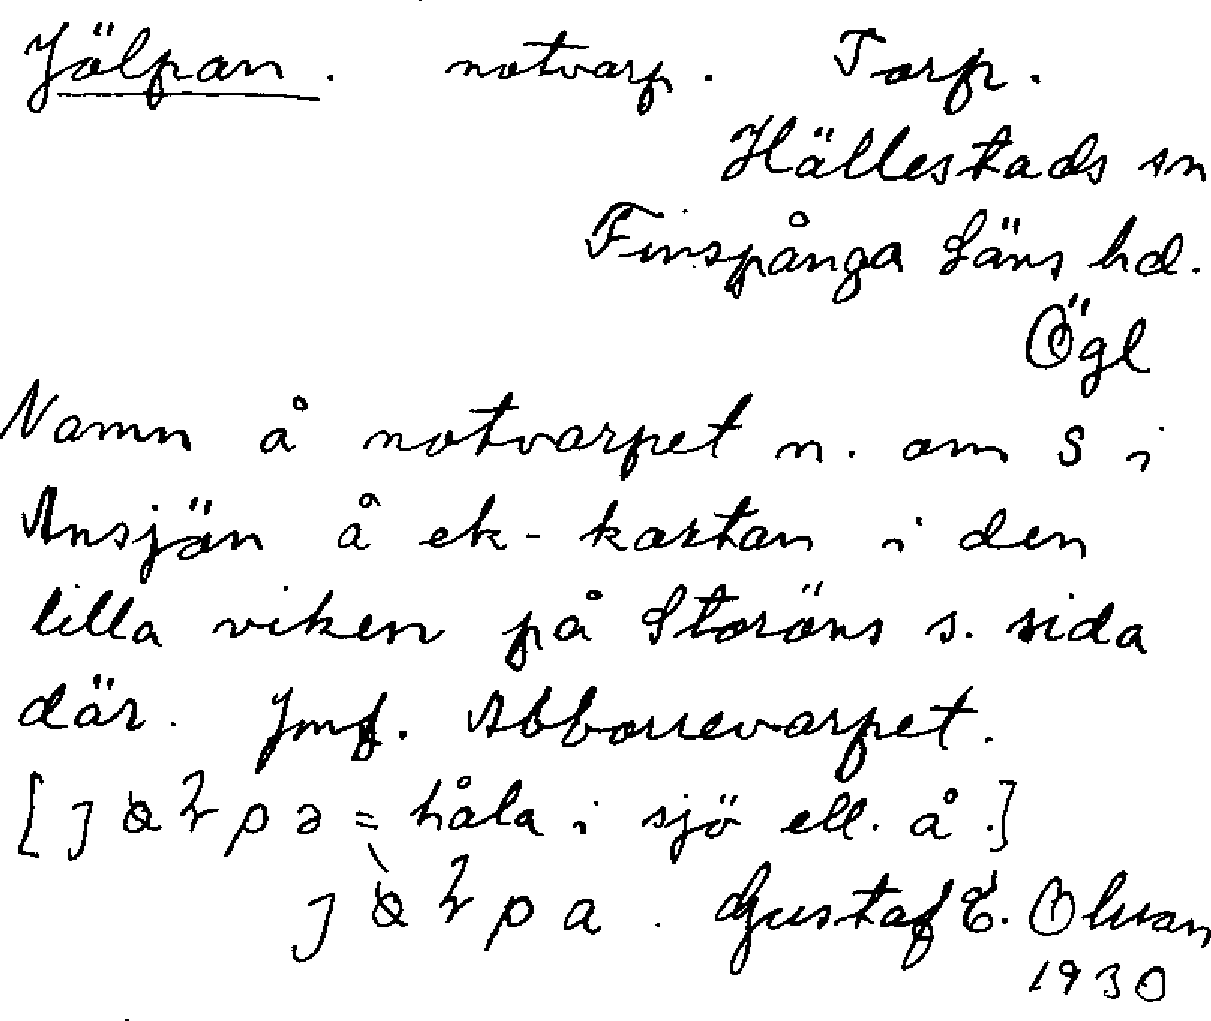 Jälpan. notvarp. Torp.
Hällestads sn
Finspånga läns hd.
Ögl
Namn å notvarpet n. om S i
Ansjön å ek-kartan i den
lilla viken på Storöns s. sida
där. Jmf. Abborrevarpet.
= håla i sjö ell. å.]
Gustaf E. Olsson
1930